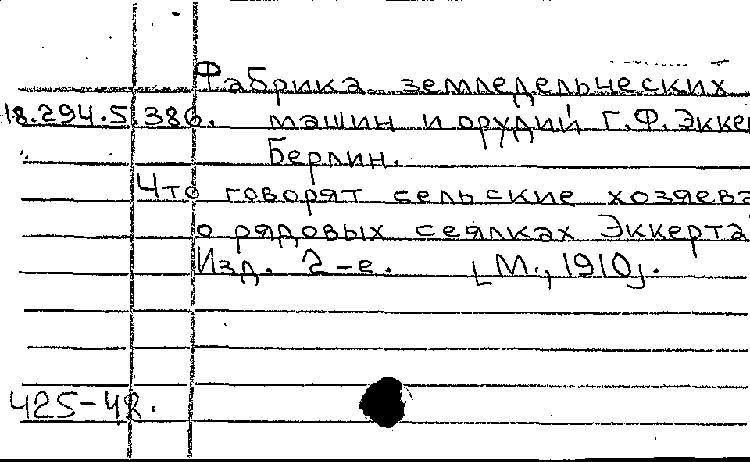 Фабрика земледельческих
18.294.5.386. машин и орудий Г.Ф.Экке
Берлин.
Что говорят сельские хозяева
о рядовых сеялках Эккерта
Изд. 2-е. [М., 1910].
425-48.